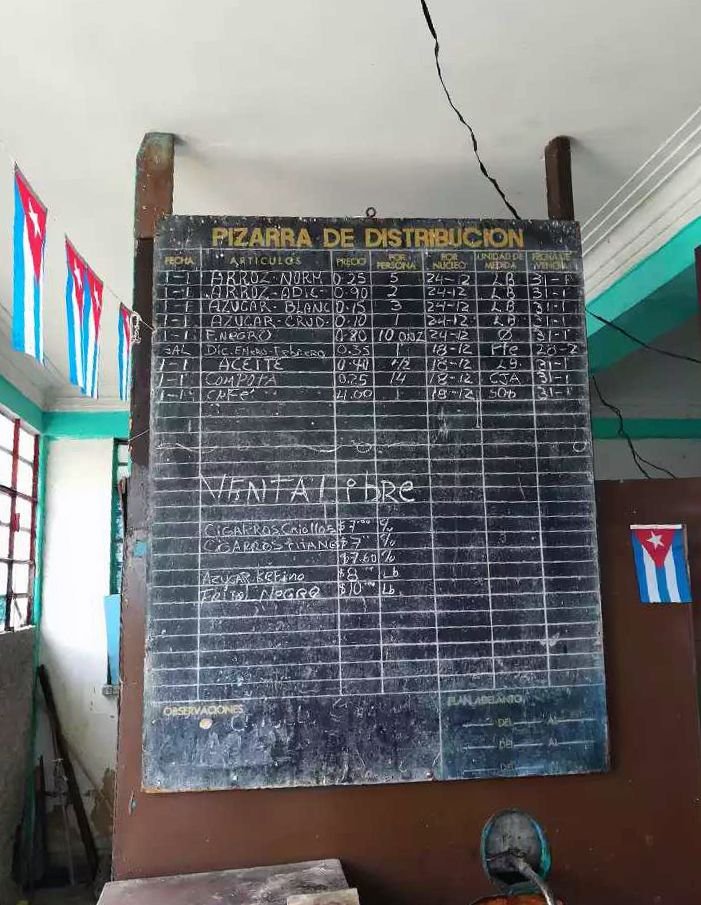 PIZARRA DE DISTRIBUCION
FECHA ARTICULOS PRECIO POR PERSONA POR NUCLEO UNIDAD DE MEDIDA FECHA DE
1-1 ARROZ-NORM 0.25 5 24-12 LB 31-1
1-1 ARROZ-ADIC- 0.90 2 24-12 LB 31-1
1-1 AZUCAR-BLANC 0.15 3 24-12 LB 31-1
1-1 AZUCAR-CRUD- 0.10 24-12 LB 31-1
1-1 F.NEGRO 0.80 10 ONZ 24-12 Ø 31-1
SAL Dic.Enero-Febrero 0.35 1 18-12 Pte 28-2
1-1 ACEITE 0.40 1/2 18-12 LB 31-1
1-1 COMPOTA 0.25 14 18-12 CJA 31-1
1-1 CAFÉ 4.00 1 18-12 SOB 31-1
VENTA LiBRE
CIGARROS Criollos $7.00 %
CIGARROS TITANES $7
$7.60 %
AZUCAR Refino $8 Lb
Frijol NEGRO $10 Lb
OBSERVACIONES
PLAN ADELANTO
DEL AL
DEL AL
DEL AL